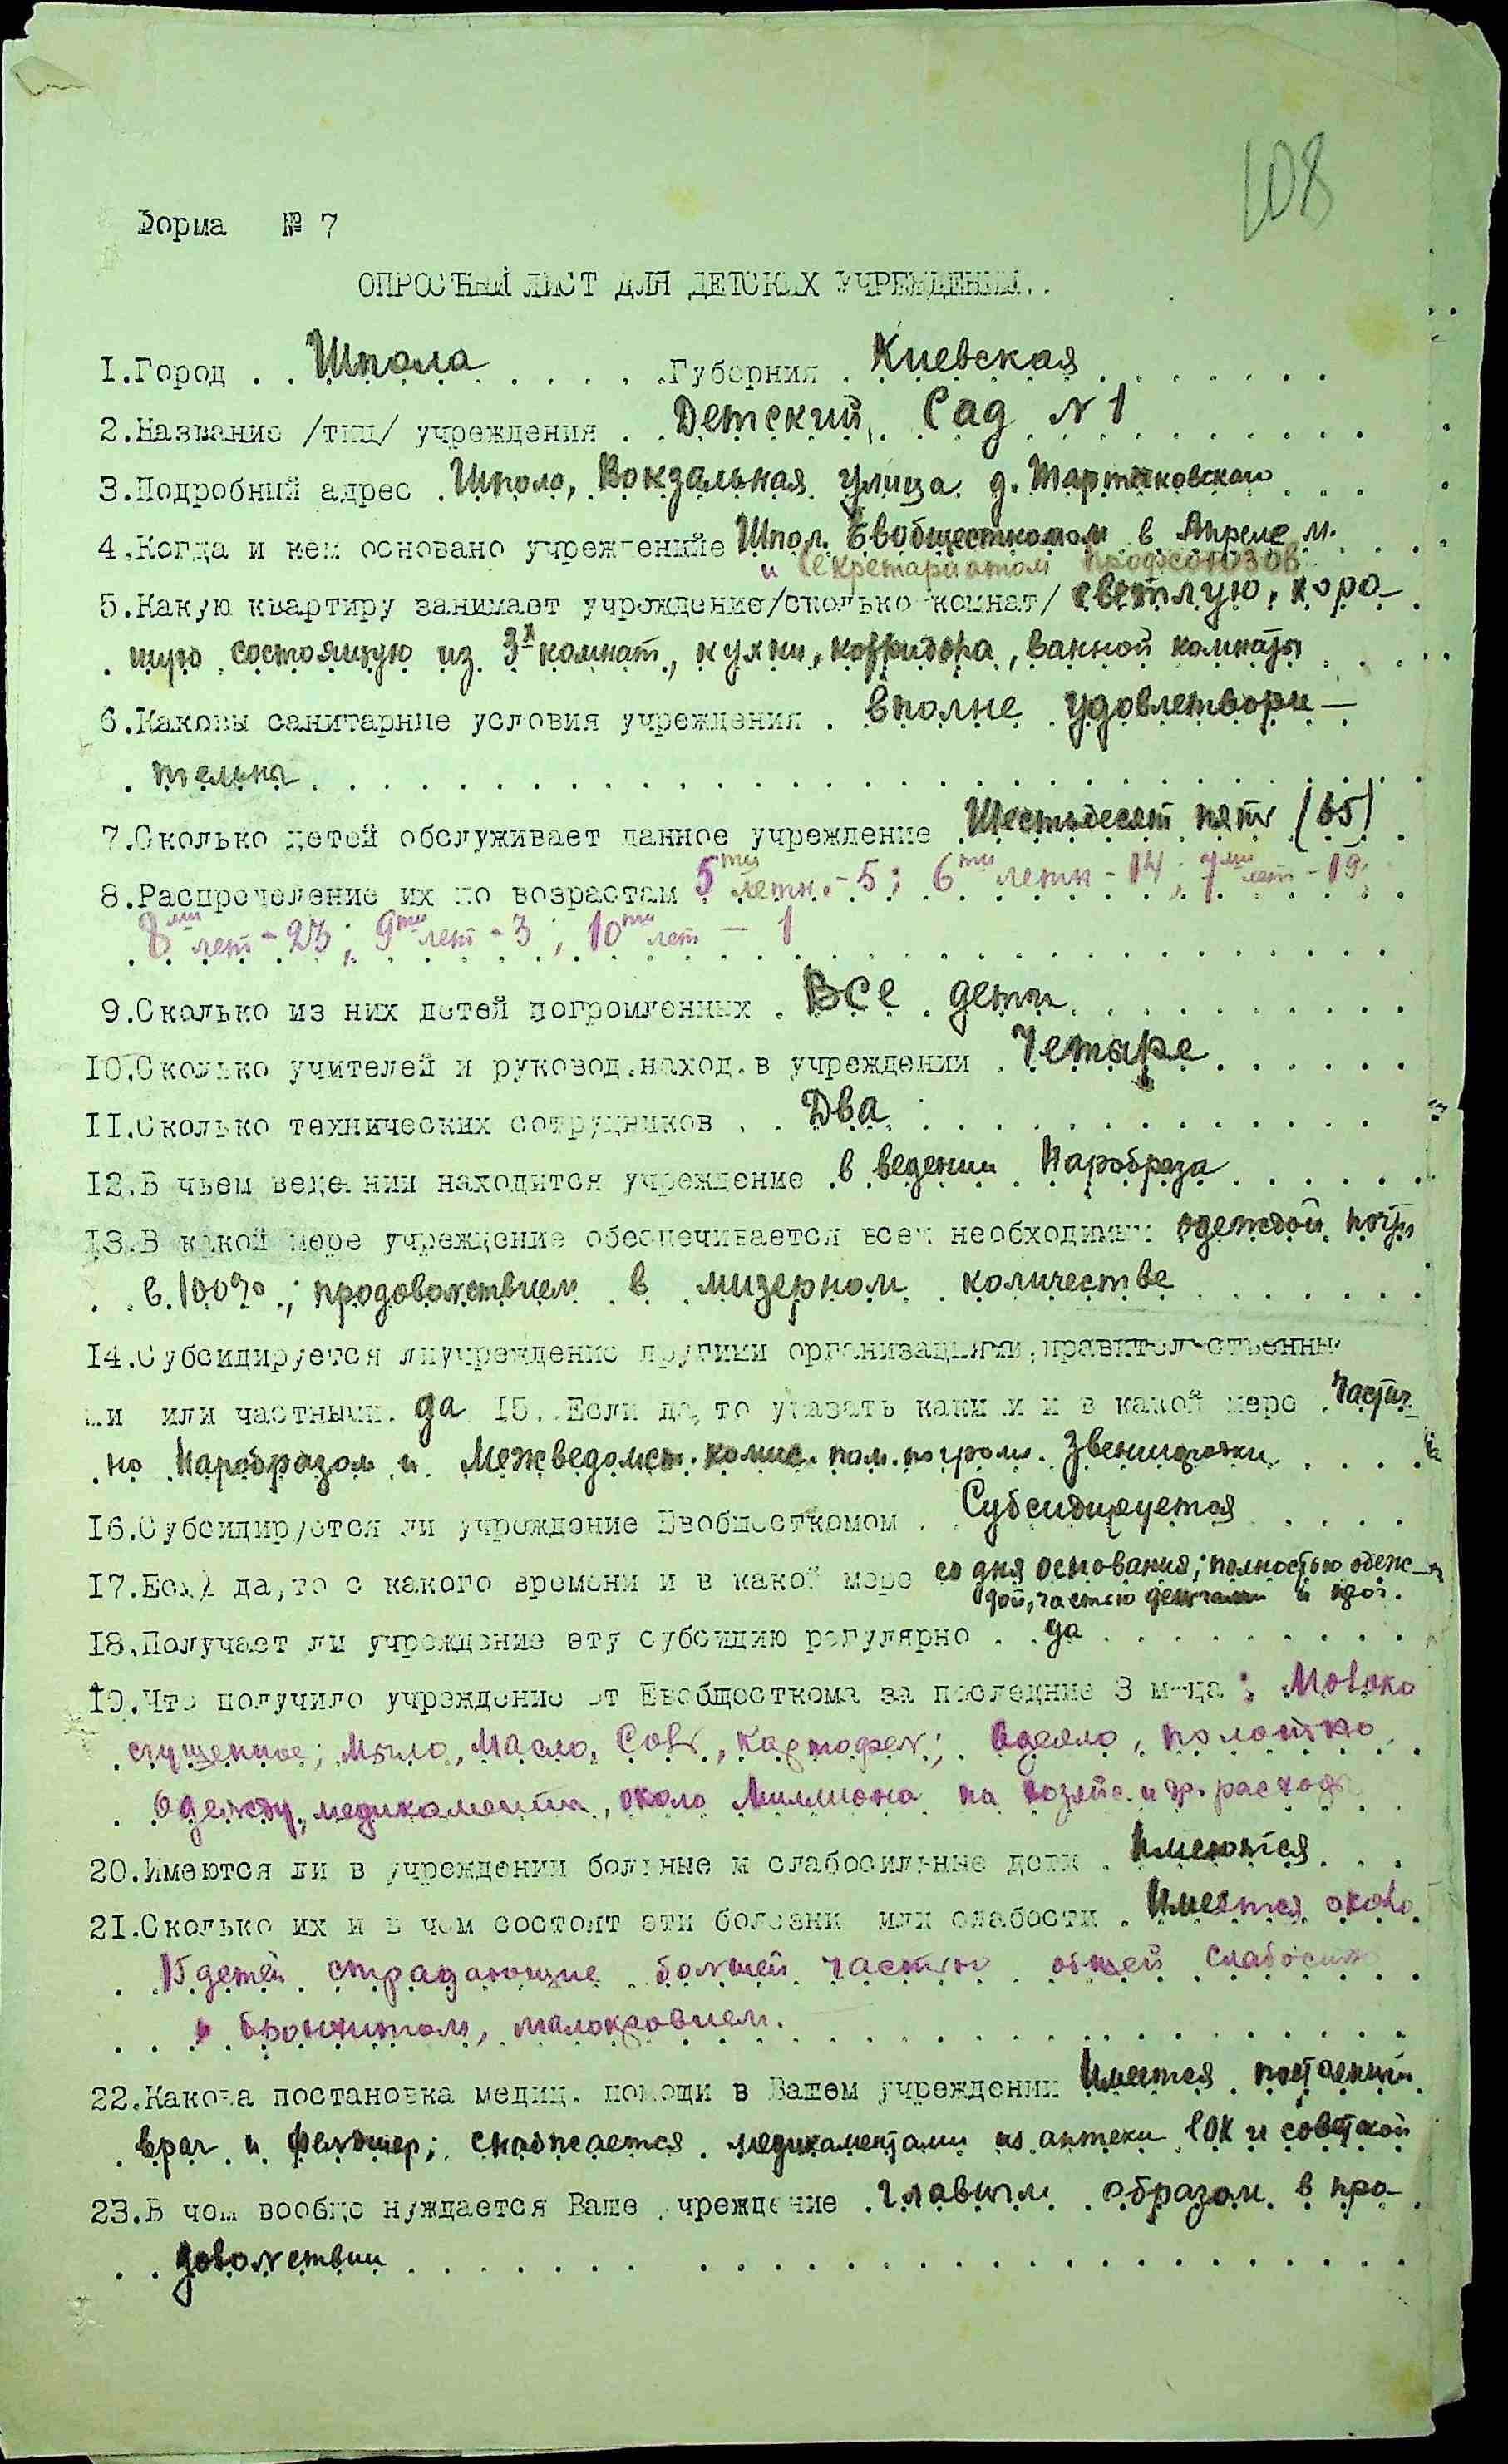 108
Форма № 7
ОПРОСНЫЙ ЛИСТ ДЛЯ ДЕТСКИХ УЧРЕЖДЕНИЙ..
1.Город . . Шпола . . . . . .Губерния . Киевская . . . . . . .
2.Название /тип/ учреждения . . Детский Сад N 1 . . . . . . . . .
3.Подробный адрес . Шпола, Вокзальная улица д. . . . .
4.Когда и кем основано учреждение Шпол. Евобщесткомом в Апреле м. . . .
и Секретариатом профсоюзов
5.Какую квартиру занимает учреждение/сколько комнат/ светлую, хоро-
шую состоящую из 3х комнат, кухни, корридора, ванной комнаты . . . .
6.Каковы санитарные условия учреждения . вполне удовлетвори-
. тельны . . . . . . . . . . . . . . . . . . . . . . . . . . .
7.Сколько детей обслуживает данное учреждение Шестьдесят пять (65) .
8.Распределение их по возрастам 5ти летн. - 5; 6ти летн - 14; 7ми лет - 19;
8ми лет - 23; 9ти лет - 3; 10ти лет - 1
9.Сколько из них детей погромленных . Все дети . . . . . . . . .
10.Сколько учителей и руковод.наход.в учреждении . Четыре . . . . . .
11.Сколько технических сотрудников . . Два . . . . . . . . . . . . .
12.В чьем ведении находится учреждение . в ведении Наробраза . . . . . .
13.В какой мере учреждение обеспечивается всем необходимым одеждой почти
. . в 100% ; продовольствием в мизерном количестве . . . . . . .
14.Субсидируется лиучреждение другими организациями,правительственны
ми или частными. да 15. Если да,то указать каки и и в какой мере . Частич-
. но Наробразом и Межведомст. комис. пом. погром. Звенигородки . . . . .
16.Субсидируется ли учреждение Евобщесткомом . . Субсидируется . . . . .
17.Если да,то с какого времени и в какой мере со дня основания; полностью одеж-
дой, частью деньгами и прод.
18.Получает ли учреждение эту субсидию регулярно . . да . . . . . . . . .
19.Что получило учреждение от Евобщесткома за последние 3 м-ца : Молоко
. сгущенное; Мыло, Масло, Соль, Картофель; Одеяло, полотно
. Одежду, медикаменты, около Миллиона на хозяйс. и др. расходы
20.Имеются ли в учреждении больные и слабосильные дети . Имеются . . .
21.Сколько их и в чем состоят эти болезни или слабости . Имеется около
. 15 детей страдающие большей частью общей слабостью
. . бронхитом, малокровием. . . . . . . . . . . . . . . . . . .
22.Какова постановка медиц. помощи в Вашем учреждении Имеется постоянный
. врач и фельдшер; снабжается медикаментами из аптеки ЕОК и советской
23.В чем вообще нуждается Ваше учреждение . главным образом в про-
. . довольствии . . . . . . . . . . . . . . . . . . . . . . . . .